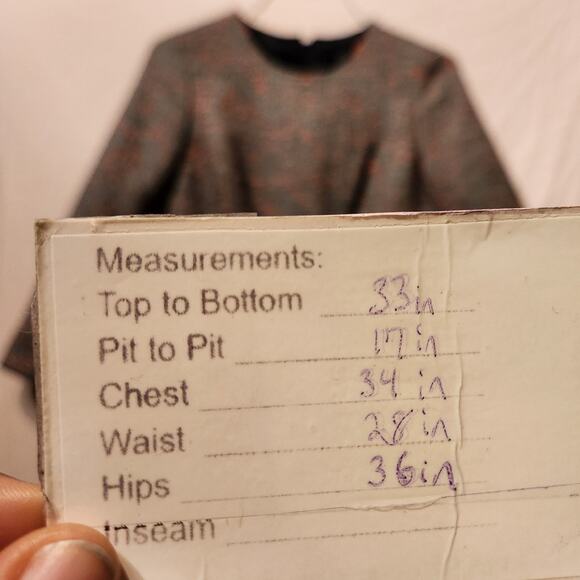 Measurements:
Top to Bottom 33in
Pit to Pit 17in
Chest 34 in
Waist 28in
Hips 36in
Inseam